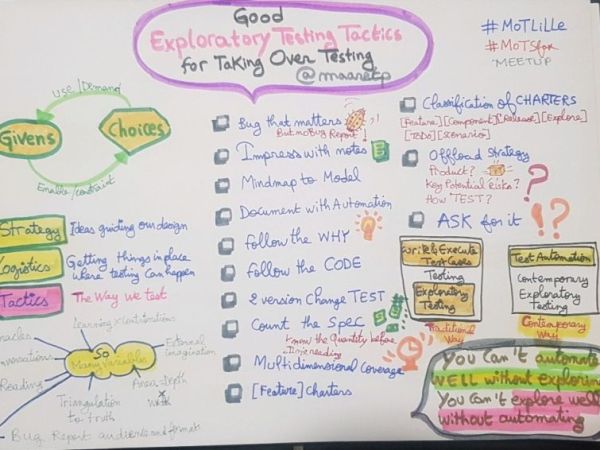 Good
Exploratory Testing Tactics
for Taking Over Testing
@maaretp
#MoTLiLLe
#MoTSfax
MEETUP
use/Demand
Givens
Choices
Enable/constraint
Strategy
Ideas guiding our design
Logistics
Getting things in place
where testing can happen
Tactics
The Way we test
Learning x Contributions
External
imagination
So
Many Variables
Reading
Area-depth
Triangulation
to truth
Bug Report audience and formats
Bug that matters
But no Bug Report!
Impress with notes
Mindmap to Model
Document with Automation
follow the WHY
follow the CODE
2 version Change TEST
Count the Spec
Know the Quantity before
Time reading
Multidimensional Coverage
[Feature] Charters
Classification of CHARTERS
[Feature] [Component] [Release] [Explore]
[ToDo] [Scenario]
Offload Strategy
Product?
Key Potential risks?
How TEST?
ASK for it
Write & Execute
Test Cases
Testing
Exploratory
Testing
Traditional
Way
Test Automation
Contemporary
Exploratory
Testing
Contemporary
Way
You Can't automate
WELL without exploring
You Can't explore well
without automating